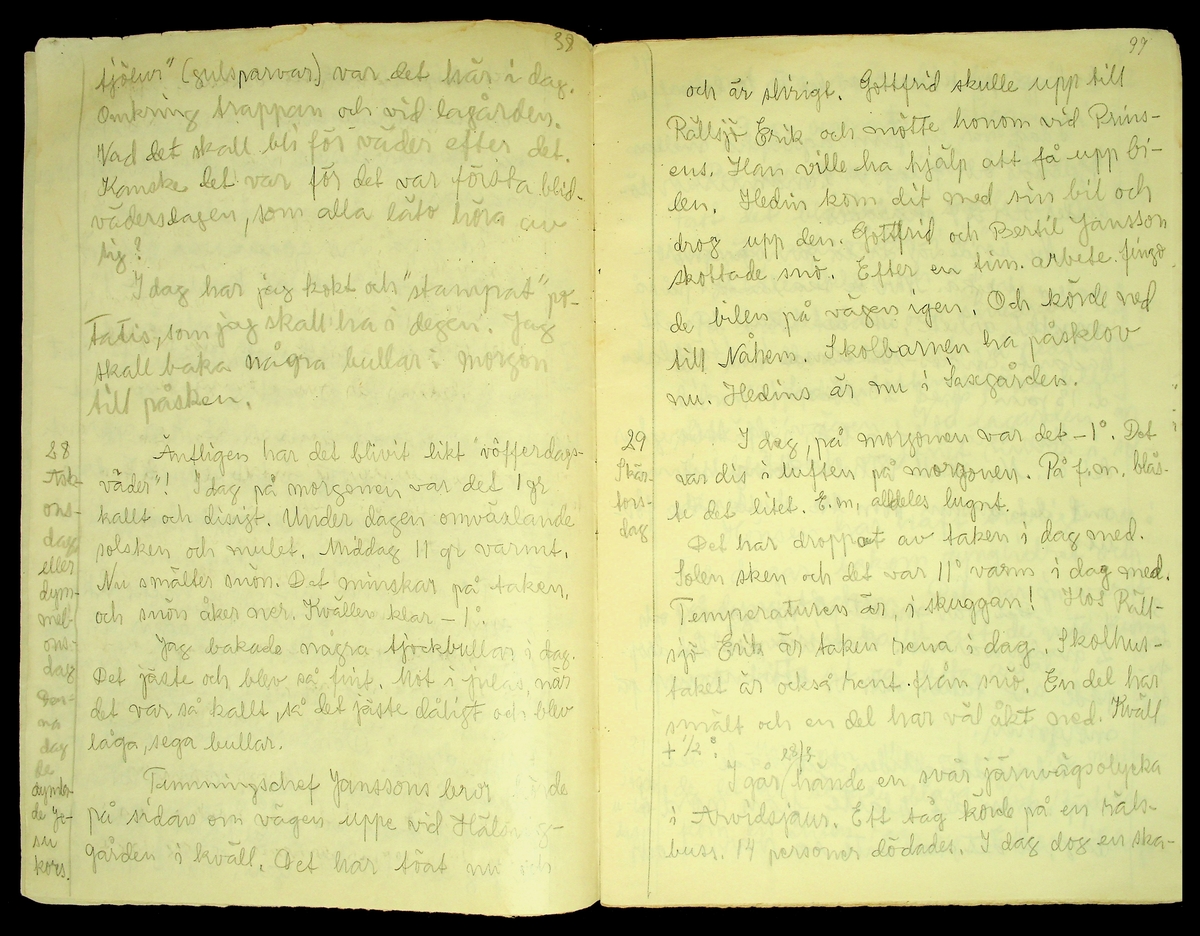 38
tjölur" (gulsparvar) var det här i dag.
Omkring trappan och vid lagården.
Vad det skall bli för väder efter det.
Kanske det var för det var första blid-
vädersdagen, som alla läto höra av
sig?
I dag har jag kokt och "stampat" po-
tatis, som jag skall ha i degen. Jag
skall baka några bullar i morgon
till påsken.
28
Ask-
ons-
dag
eller
dym-
mel-
ons-
dag
na
dag
de
de Je-
su
kors.
Äntligen har det blivit likt "våfferdags-
väder"! I dag på morgonen var det 1 gr
kallt och disigt. Under dagen omväxlande
solsken och mulet. Middag 11 gr varmt.
Nu smälter snön. Det minskar på taken,
och snön åker ner. Kvällen klar – 1°.
Jag bakade några tjockbullar i dag.
Det jäste och blev så fint. Mot i julas, när
det var så kallt, så det jäste dåligt och blev
låga, sega bullar.
Timmingschef Janssons bror de
på sidan om vägen uppe vid
gården i kväll. Det har töat nu och
99
och är slirigt. Gottfrid skulle upp till
Rällsjö Erik och mötte honom vid Prins-
ens. Han ville ha hjälp att få upp bi-
len. Hedin kom dit med sin bil och
drog upp den. Gottfrid och Bertil Jansson
skottade snö. Efter en tim. arbete fingo
de bilen på vägen igen. Och körde ned
till Nåhem. Skolbarnen ha påsklov
nu. Hedins är nu i Saxgården.
29
Skär-
tors-
dag
I dag, på morgonen var det –1°. Det
var dis i luften på morgonen. På f.m. blås-
te det litet. E.m. alldeles lugnt.
Det har droppat av taken i dag med.
Solen sken och det var 11° varm i dag med.
Temperaturen är, i skuggan! Hos Räll-
sjö Erik är taken rena i dag. Skolhus-
taket är också rent från snö. En del har
smält och en del har väl åkt ned. Kväll
+ 1/2°.
I går 28/3 hände en svår järnvägsolycka
i Arvidsjaur. Ett tåg körde på en räls-
buss. 14 personer dödades. I dag dog en ska-